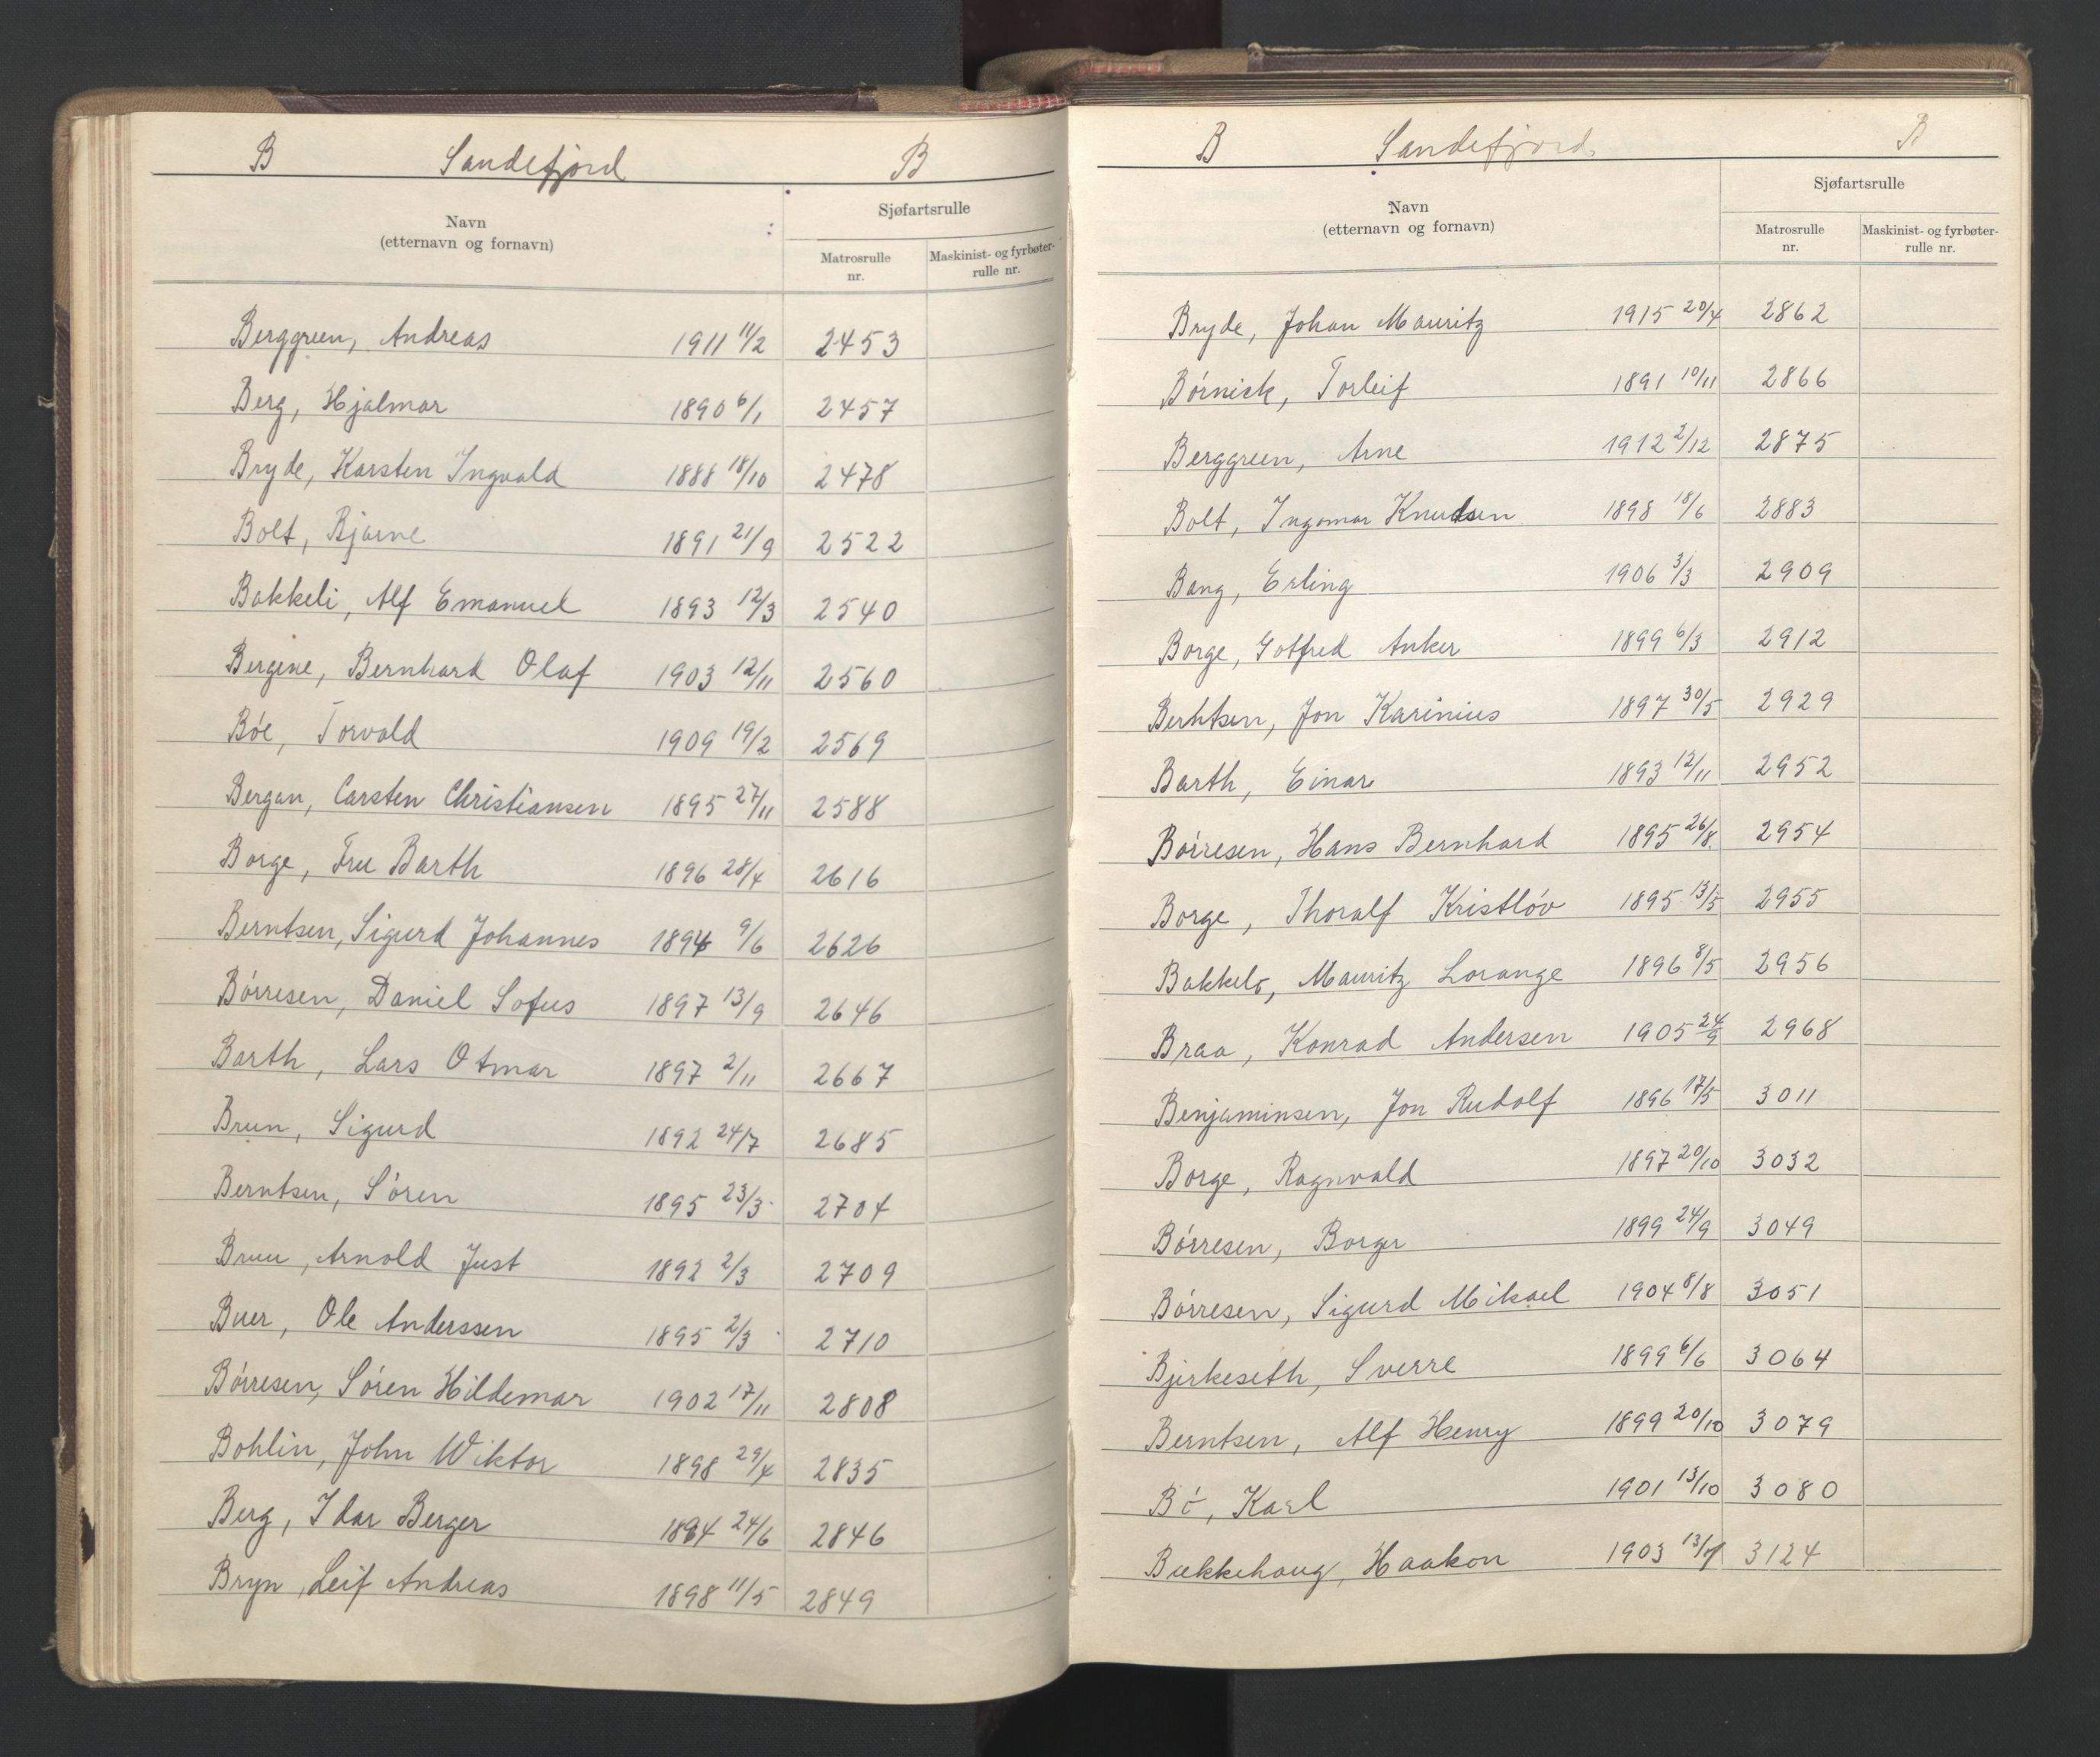 B Sandefjord B
Navn
(etternavn og fornavn)
Sjøfartsrulle
Matrosrulle nr.
Maskinist- og fyrbøter-rulle nr.
Berggreen, Andreas 1911 11/2 2453
Berg, Hjalmar 1890 6/1 2457
Bryde, Karsten Ingvald 1888 18/10 2478
Bolt, Bjarne 1891 21/9 2522
Bakkeli, Alf Emanuel 1893 12/3 2540
Bergene, Bernhard Olaf 1903 12/11 2560
Bøe, Torvald 1909 19/2 2569
Bergan, Carsten Christiansen 1895 27/11 2588
Borge, Fru Barth 1896 28/4 2616
Berntsen, Sigurd Johannes 1894 9/6 2626
Børresen, Daniel Sofus 1897 13/9 2646
Barth, Lars Otmar 1897 2/11 2667
Brun, Sigurd 1892 24/7 2685
Berntsen, Søren 1895 23/3 2704
Bruu, Arnold Just 1892 2/3 2709
Buer, Ole Anderssen 1895 2/3 2710
Børresen, Søren Hildemar 1902 17/11 2808
Bohlin, John Wiktor 1898 29/4 2835
Berg, Idar Berger 1894 24/6 2846
Bryn, Leif Andreas 1898 11/5 2849
B Sandefjord B
Navn
(etternavn og fornavn)
Sjøfartsrulle
Matrosrulle nr.
Maskinist- og fyrbøter-rulle nr.
Bryde, Johan Mauritz 1915 20/4 2862
Børnick, Torleif 1891 10/11 2866
Berggreen, Arne 1912 2/12 2875
Bolt, Ingomar Knudsen 1898 18/6 2883
Bang, Erling 1906 3/3 2909
Borge, Gotfred Anker 1899 6/3 2912
Berntsen, Jon Karinius 1897 30/5 2929
Barth, Einar 1893 12/11 2952
Børresen, Hans Bernhard 1895 26/8 2954
Borge, Thoralf Kristløv 1895 13/5 2955
Mauritz Lorange 1896 8/5 2956
Braa, Konrad Andersen 1905 24/9 2968
Benjaminsen, Jon Rudolf 1896 17/5 3011
Borge, Ragnvald 1897 20/10 3032
Børresen, Borger 1899 24/9 3049
Børresen, Sigurd Mikael 1904 8/8 3051
Bjerkeseth, Sverre 1899 6/6 3064
Berntsen, Alf Henry 1899 20/10 3079
Bø, Karl 1901 13/10 3080
Bækkehaug, Haakon 1903 3124